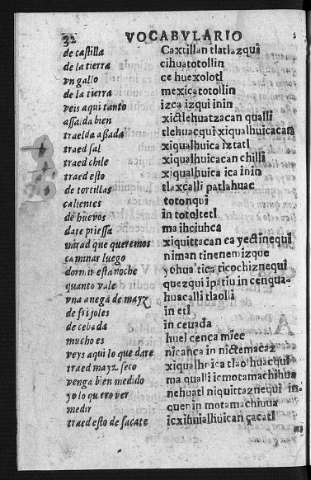 32 VOCABVLARIO
de castilla Caxtillan tlatlazqui
de la tierra cihuatotollin
vn gallo ce huexolotl
de la tierra mexica totollin
veis aqui tanto izca izqui inin
assada bien xictlehuatzacan qualli
traelda assada tlehuacqui xiqualhuicacara
traed sal xiqualhuica iztatl
traed chile xiqualhuicacan chilli
traed esto xiqualhuica ica inin
de tortillas tlaxcalli patlahuac
calientes totonqui
de hueuos in totoltetl
date priessa ma ihciuhca
mirad que queremos xiquittacan ca yectinequi
caminar luego niman tinenemizque
dormir esta noche yohuatica ticochiznequi
quanto vale quezqui ipatiu in cenqua
vna anega de mayz huacalli tlaolli
de frijoles in etl
de cebada in ceuada
mucho es huel cenca miec
veys aqui lo que dare nicanca in nictemacaz
traed mayz seco xiqualhuica tlaolhuacqui
venga bien medido ma qualli icmotamachihua
yo lo quero ver nehuatl niquittaznequi in
medir quenin motamachiuua
traed esto de sacate icxihuialhuican çacatl